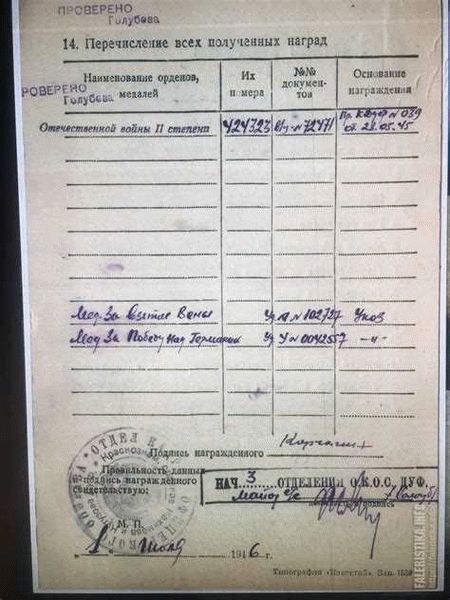 ПРОВЕРЕНО
Голубева
14. Перечисление всех полученных наград
Наименование орденов, медалей
Их номера
№№ документов
Основание награждения
ПРОВЕРЕНО
Голубева
Отечественной войны II степени 424323 №72471 Пр. № 039 от 28.05.45
Мед. За Взятие Вены Уд. А №102727 Указ
Мед За Победу над Германией Уд У №0042557 —"—
Подпись награжденного
Правильность данных
и подпись награжденного
свидетельствую:
НАЧ. 3 ОТДЕЛЕНИЯ О.К.О.С. ЦУФ.
майор
подпись
М. П.
1 Июля 1946 г.
Типография
FALERISTIKA.INFO